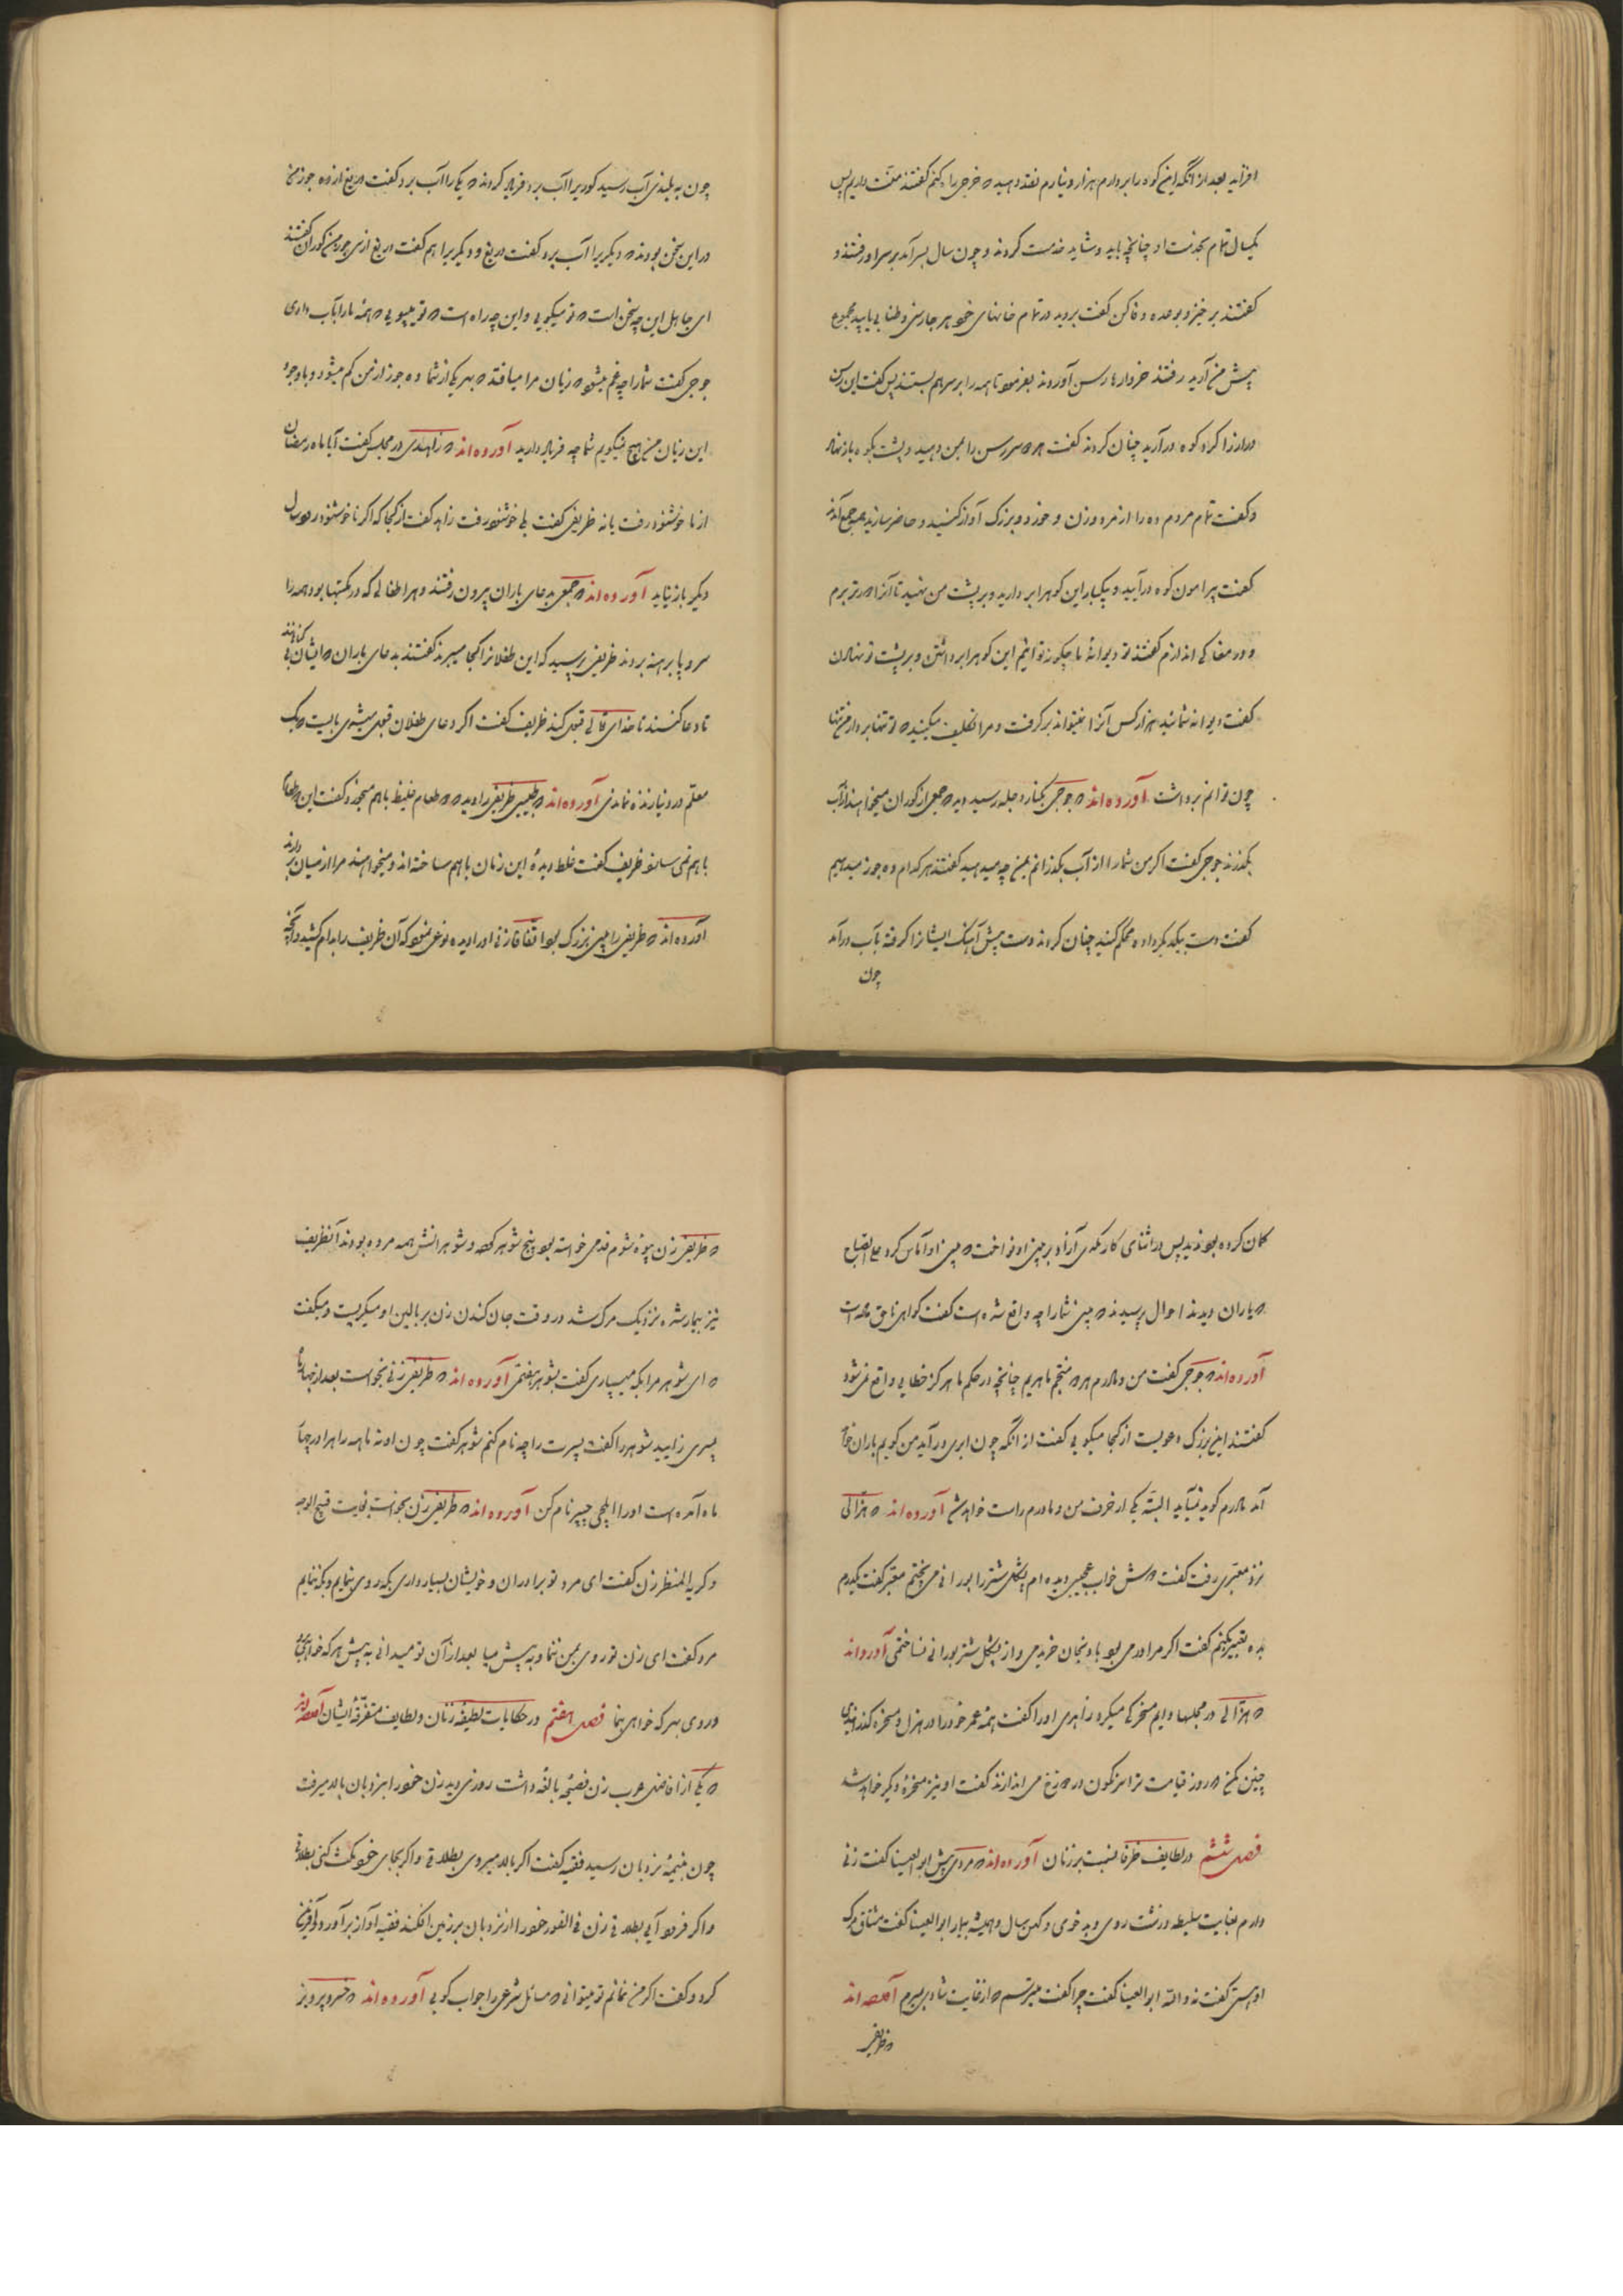 افزاید بعد از آنکه این کوه را بردارم هزار دینارم نقد دهید که خرجی راه کنم گفتند منت داریم پس
یکسال تمام بخدمت او چنانچه باید و شاید خدمت کردند و چون سال بسر آمد بر سر او رفتند و
گفتند برخیز و بوعده وفا کن گفت بروید در تمام خانهای خود هر جا رسنی و طنابی یابید مجموع
پیش من آرید رفتند خروارها رسن آوردند بفرمود تا همه را بر سر هم بستند پس گفت این رسن
دراز را گرد کوه درآرید چنان کردند گفت هر دو سر رسن را بمن دهید و پشت بکوه باز نهاد
و گفت تمام مردم ده را از مرد و زن و خورد و بزرگ آواز کنید و حاضر سازید همه جمع آمدند
گفت پیرامون کوه درآیید و یکبار این کوه را بردارید و بر پشت من نهید تا آنرا دورتر برم
و در مغاکی اندازم گفتند تو دیوانهٔ ما چگونه توانیم این کوه را برداشتن و بر پشت تو نهادن
گفت دیوانه شمائید هزار کس آنرا نمیتواند برگرفت و مرا تکلیف میکنید که تو تنها بردار من تنها
چون توانم برداشت آورده‌اند که جوحی بکنار دجله رسید دید که جمعی از کوران میخواهند از آب
بگذرند جوحی گفت اگر من شما را از آب بگذرانم بمن چه میدهید گفتند هر کدام ده جوز میدهیم
گفت دست بیکدیگر داده محکم گیرید چنان کردند دست پیش آهنگ ایشانرا گرفته بآب درآمد
چون
چون به بلندی آب رسید کوری را آب برد فریاد کردند که یکی را آب برد گفت دریغ از ده جوز من
در این سخن بودند که دیگری را آب برد گفت دریغ و دیگری را هم گفت دریغ از سی جوز من کوران گفتند
ای جاهل این چه سخن است که تو میگویی و این چه راه است که تو میپویی که همه ما را بآب دادی
جوحی گفت شما را چه غم میشود زیان مرا میافتد که بهر یکی از شما ده جوز از من کم میشود و با وجود
این زیان من هیچ نمیگویم شما چه فریاد دارید آورده‌اند که زاهدی در مجلس گفت آیا ماه رمضان
از ما خوشنود رفت یا نه ظریفی گفت بلی خوشنود رفت زاهد گفت از کجا که اگر ناخوشنود رود سال
دیگر باز نیاید آورده‌اند که جمعی بدعای باران بیرون رفتند و هر اطفالی که در مکتبها بود همه را
سر و پا برهنه بردند ظریفی پرسید که این طفلانرا کجا میبرند گفتند بدعای باران که ایشان بی گناهند
تا دعا کنند تا خدای تعالی قبول کند ظریف گفت اگر دعای طفلان قبول میشدی بایست که یک
معلم در دنیا زنده نماندی آورده‌اند که طبیبی ظریفی را دید که دو طعام غلیظ باهم میخورد گفت این دو طعام
باهم نمی‌سازد ظریف گفت غلط دیدهٔ این زمان باهم ساخته‌اند و میخواهند مرا از میان بردارند
آورده‌اند که ظریفی را بینی بزرگ بود اتفاقا زنی او را دید نوعی نمود که آن ظریف را بدام کشید و آنچه
گمان کرده بود ندید پس در اثنای کار لکدی آزاد بر بینی او نواخت که بینی او آماس کرد علی الصباح
که یاران دیدند احوال پرسیدند که بینی شما را چه واقع شده است گفت گواهی ناحق داده است
آورده‌اند که جوحی گفت من و مادرم هر دو منجم ماهریم چنانچه در حکم ما هرگز خطایی واقع نمیشود
گفتند این بزرگ دعویست از کجا میگویی گفت از آنکه چون ابری درآید من گویم باران خواهد
آمد مادرم گوید نمی‌آید البته یکی از حرف من و مادرم راست خواهد شد آورده‌اند که هزالی
نزد معبری رفت گفت دوش خواب عجیبی دیده‌ام پشکل شتر را بورانی می‌پختم معبر گفت یکدرم
بده تعبیر کنم گفت اگر مرا درمی بود بادنجان خریدمی و از پشکل شتر بورانی نساختمی آورده‌اند
که هزالی در مجلسها دایم مسخرگی میکرد زاهدی او را گفت همه عمر خود را در هزل و مسخره گذرانیدی
چنین مکن که روز قیامت ترا سرنگون در دوزخ می‌اندازند گفت او نیز مسخرهٔ دیگر خواهد شد
فصل ششم در لطایف ظرفا نسبت بزنان آورده‌اند که مردی پیش ابوالعینا گفت زنی
دارم بغایت سلیطه و زشت روی و بدخوی و کهن سال و همیشه بیمار ابوالعینا گفت مشتاق مرگ
او هستی گفت نه والله ابوالعینا گفت چرا گفت میترسم که از غایت شادی بمیرم آورده‌اند
که ظریفی
که ظریفی زن بیوه شوم قدمی خواسته بود پنج شوهر کرده و شوهرانش همه مرده بودند آن ظریف
نیز بیمار شد نزدیک مرگ شد در وقت جان کندن زن بر بالین او میگریست و میگفت
که ای شوهر مرا بکه میسپاری گفت بشوهر هفتمی آورده‌اند که ظریفی زنی بخواست بعد از چهار ماه
پسری زایید شوهر را گفت پسرت را چه نام کنم شوهر گفت چون او نه ماهه راه را در چهار
ماه آمده است او را ایلچی چیپر نام کن آورده‌اند که ظریفی زن بخواست بغایت قبیح الوجه
و کریه المنظر زن گفت ای مرد تو برادران و خویشان بسیار داری بکه روی بنمایم و بکه ننمایم
مرد گفت ای زن تو روی بمن ننما و به پیش میا بعد از آن تو میدانی به پیش هر که خواهی بیا
و روی بهر که خواهی بنما فصل هفتم در حکایات لطیفه زنان و لطایف متفرقه ایشان آورده‌اند
که یکی از افاضل عرب زن فصیحهٔ بالغه داشت روزی دید زن خود را بنردبان بالا میرفت
چون بنیمهٔ نردبان رسید فقیه گفت اگر بالا میروی بطلاقی و اگر بجای خود مکث کنی بطلاقی
و اگر فرود آیی بطلاقی زن فی الفور خود را از نردبان بر زمین افکند فقیه آواز برآورد و آفرین
کرد و گفت اگر من نمانم تو میتوانی که مسائل شرعی را جواب گویی آورده‌اند که خسرو پرویز